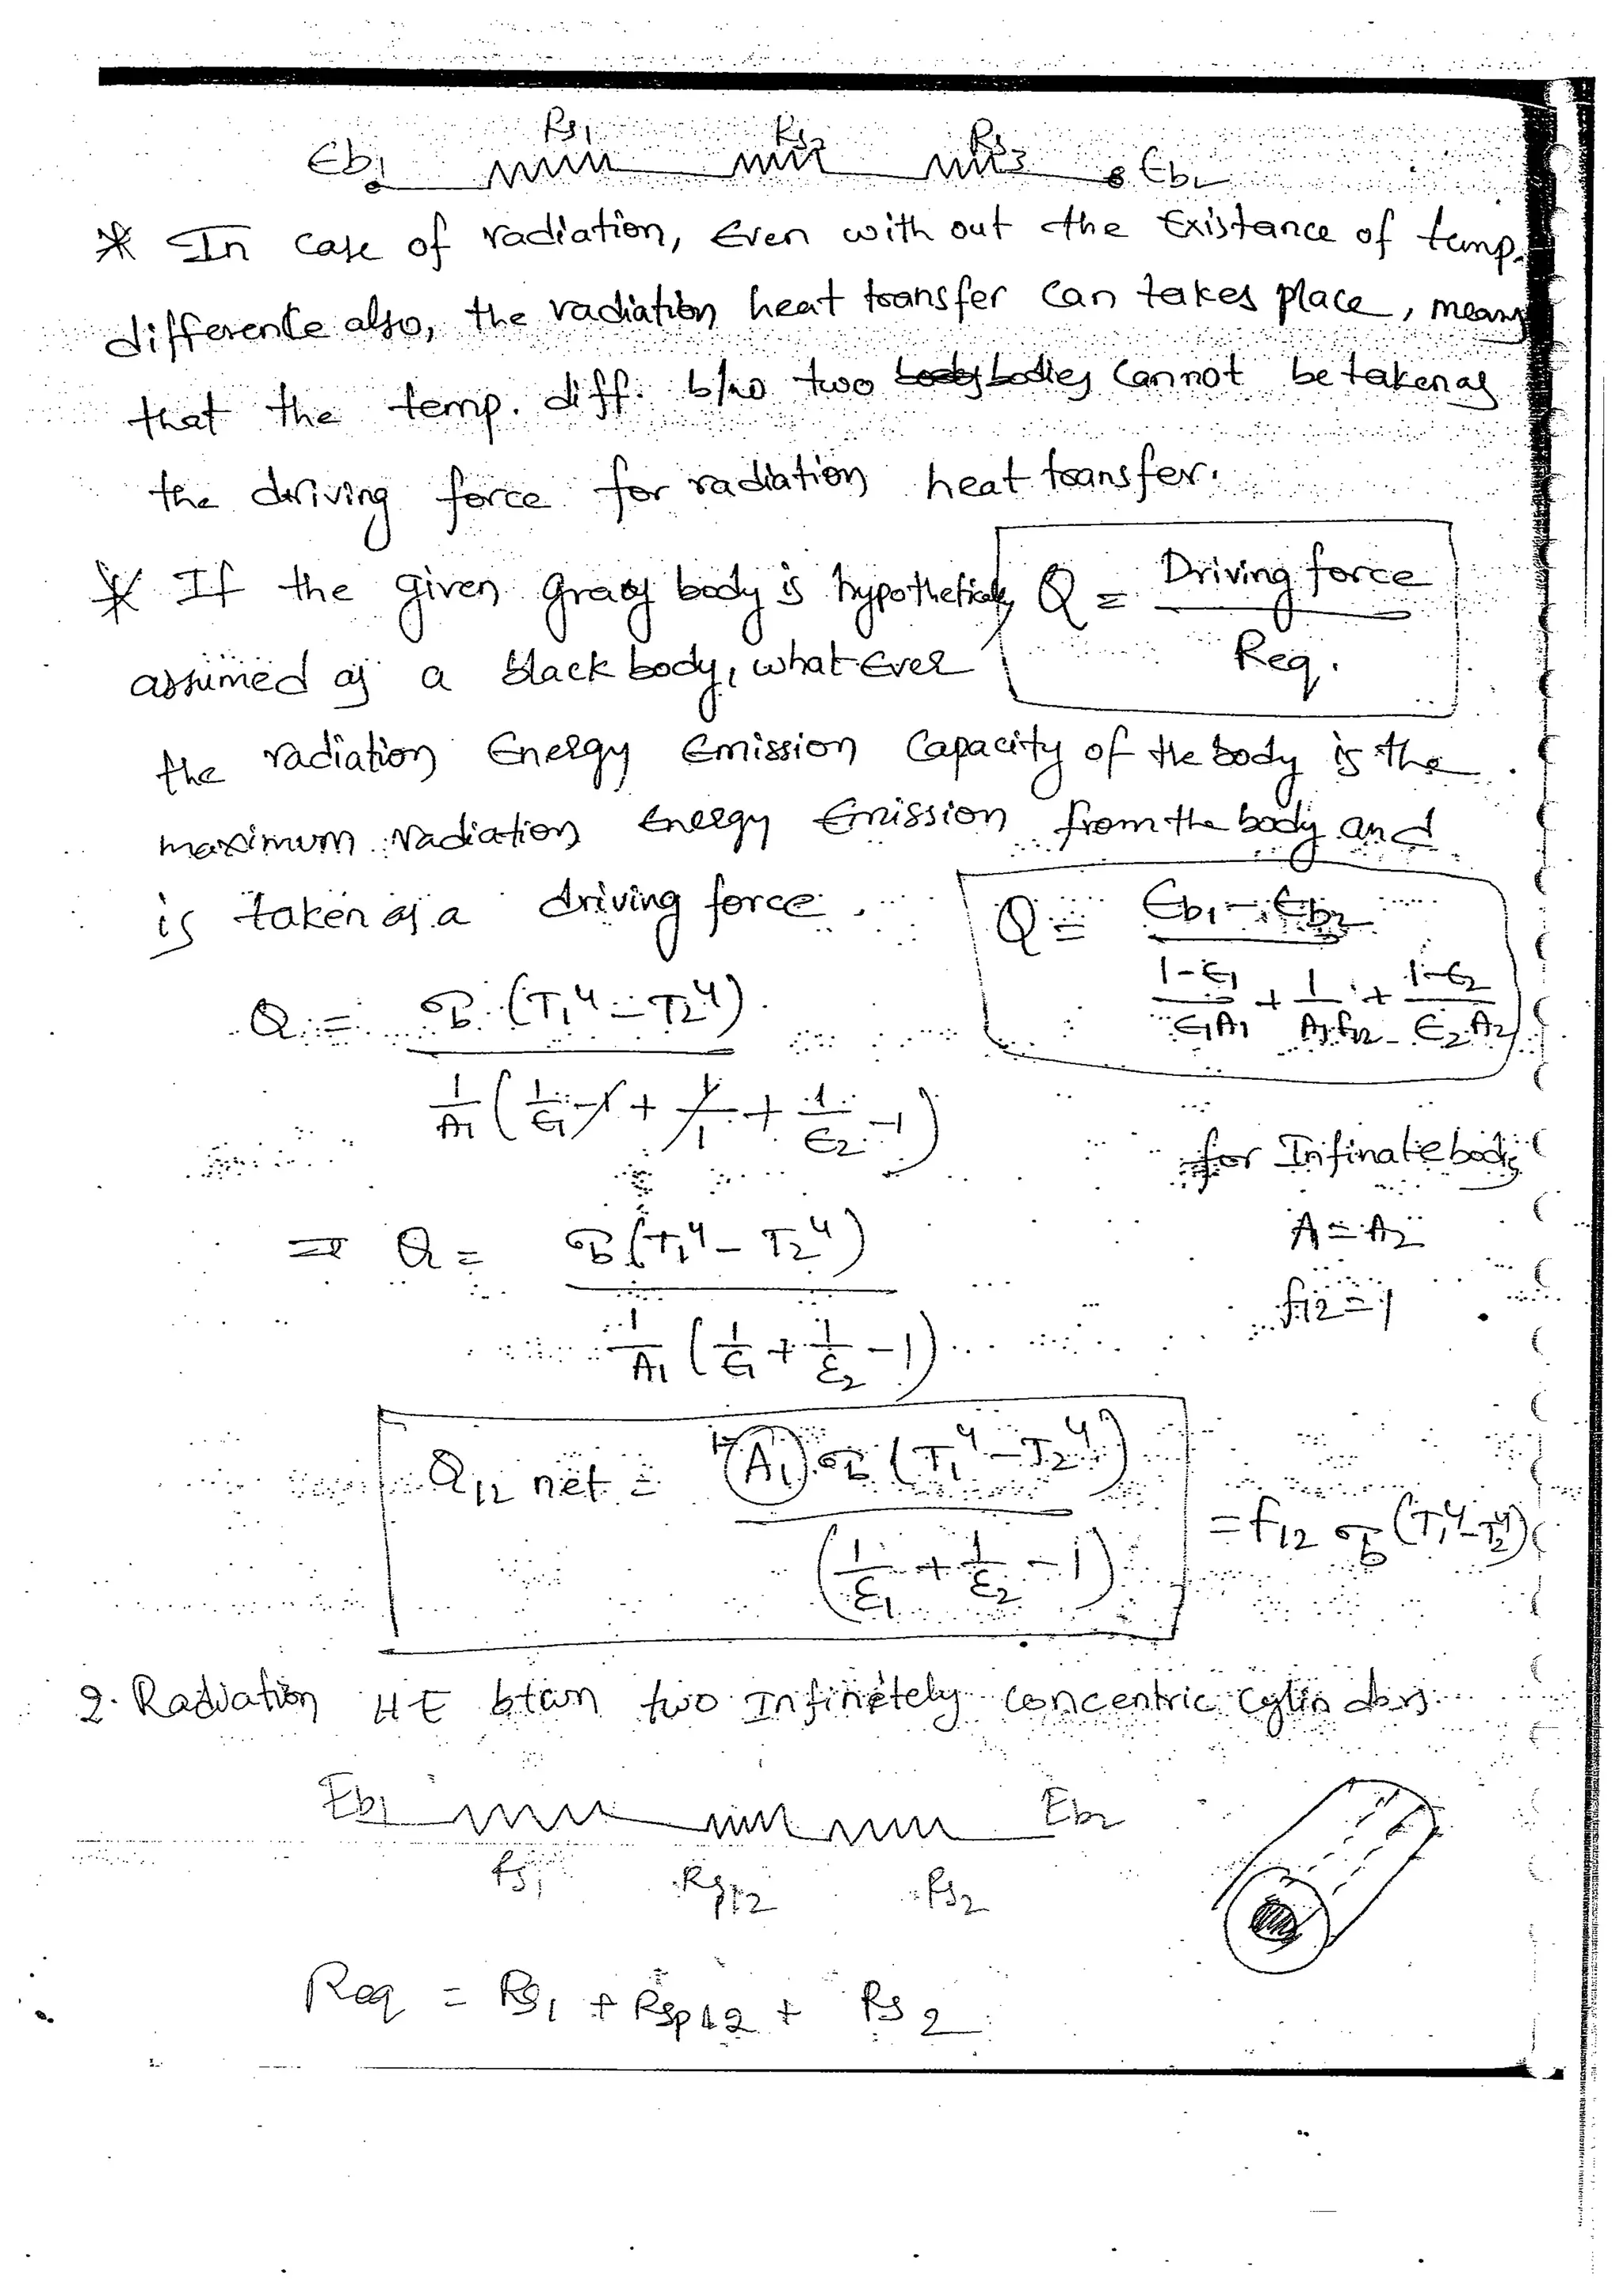 Rs1 Rs2 Rs3
Eb1 Eb2
* In case of radiation, Even with out the Existance of temp.
difference also, the radiation heat transfer can takes place, means
that the temp. diff. b/w two bodies cannot be taken as
the driving force for radiation heat transfer.
* If the given gray body is hypothetically
Q = Driving force / Req.
assumed as a black body, what Ever
the radiation Energy Emission capacity of the body is the
maximum radiation Energy Emission from the body and
is taken as a driving force.
Q = (Eb1 - Eb2) / ((1-ε1)/(ε1A1) + 1/(A1f12) + (1-ε2)/(ε2A2))
Q = σb (T1⁴ - T2⁴) / (1/A1 (1/ε1 - 1 + 1/1 + 1/ε2 - 1))
for Infinate body
⇒ Q = σb (T1⁴ - T2⁴) / (1/A1 (1/ε1 + 1/ε2 - 1))
A = A2
f12 = 1
Q12 net = A1 σb (T1⁴ - T2⁴) / (1/ε1 + 1/ε2 - 1) = f12 σb (T1⁴ - T2⁴)
2. Radiation HE btwn two Infinetely concentric cylinders
Eb1 Eb2
Rs1 Rsp12 Rs2
Req = Rs1 + Rsp12 + Rs2